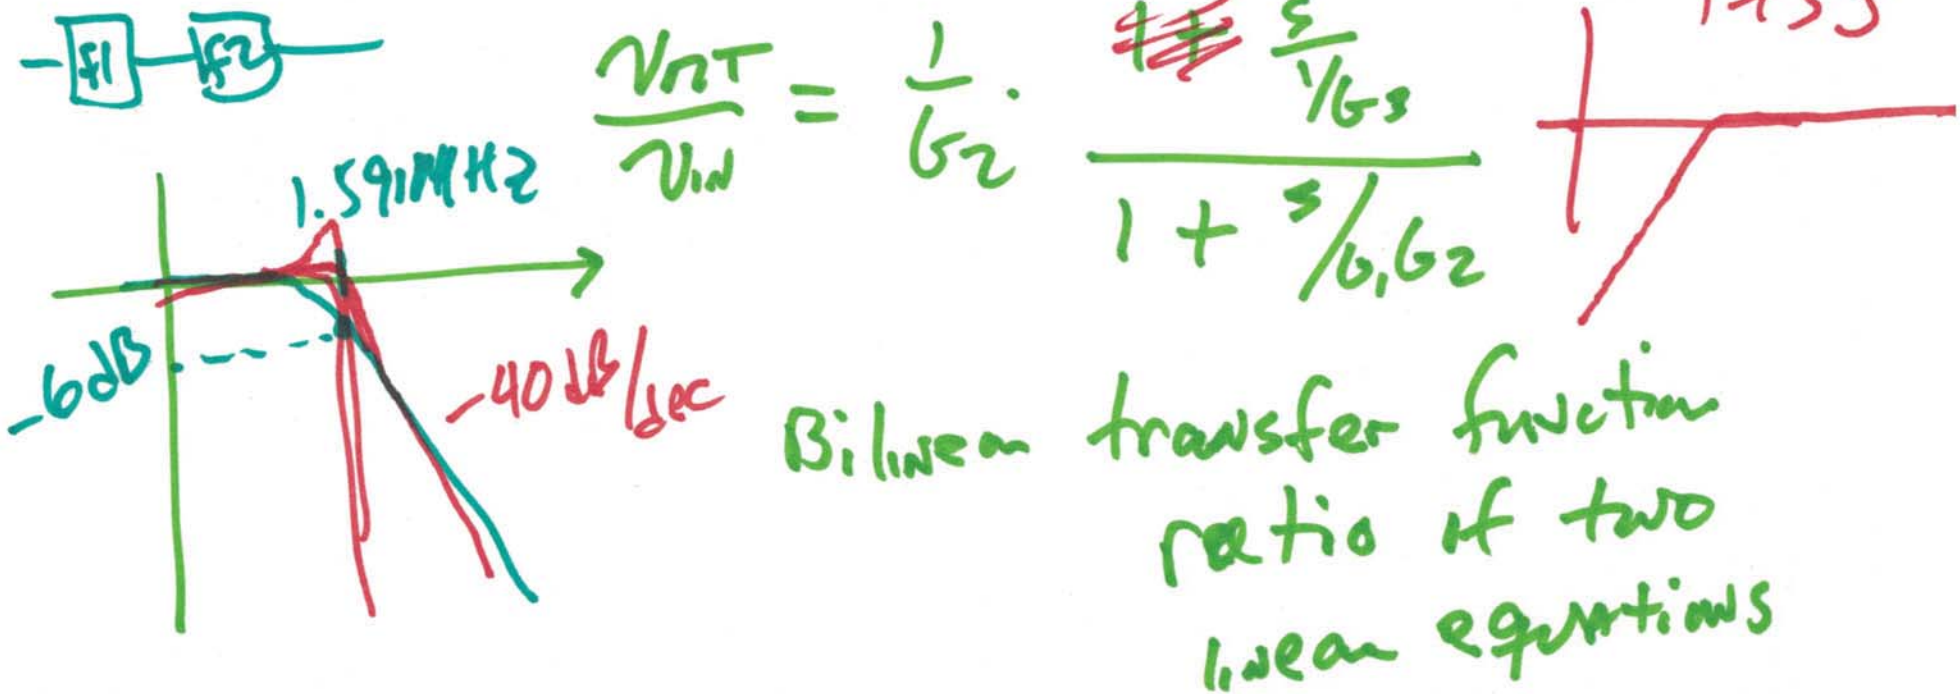 f1 f2
vout/vin = 1/G2 · (s/(1/G3))/(1 + s/G1G2)
1.591MHz
-6dB
-40dB/dec
Bilinear transfer function
ratio of two
linear equations